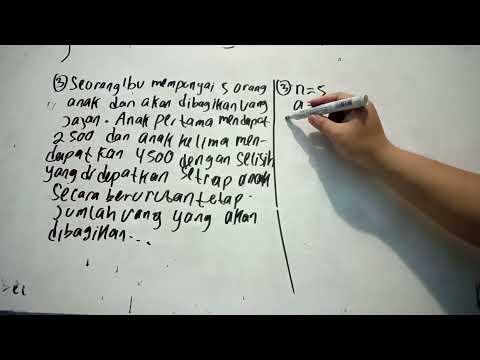 ③ Seorang Ibu mempunyai 5 orang
anak dan akan dibagikan uang
jajan. Anak pertama mendapat
2500 dan anak kelima men-
dapatkan 4500 dengan selisih
yang didapatkan setiap anak
secara berurutan tetap.
Jumlah uang yang akan
dibagikan...
③ n=5
a=